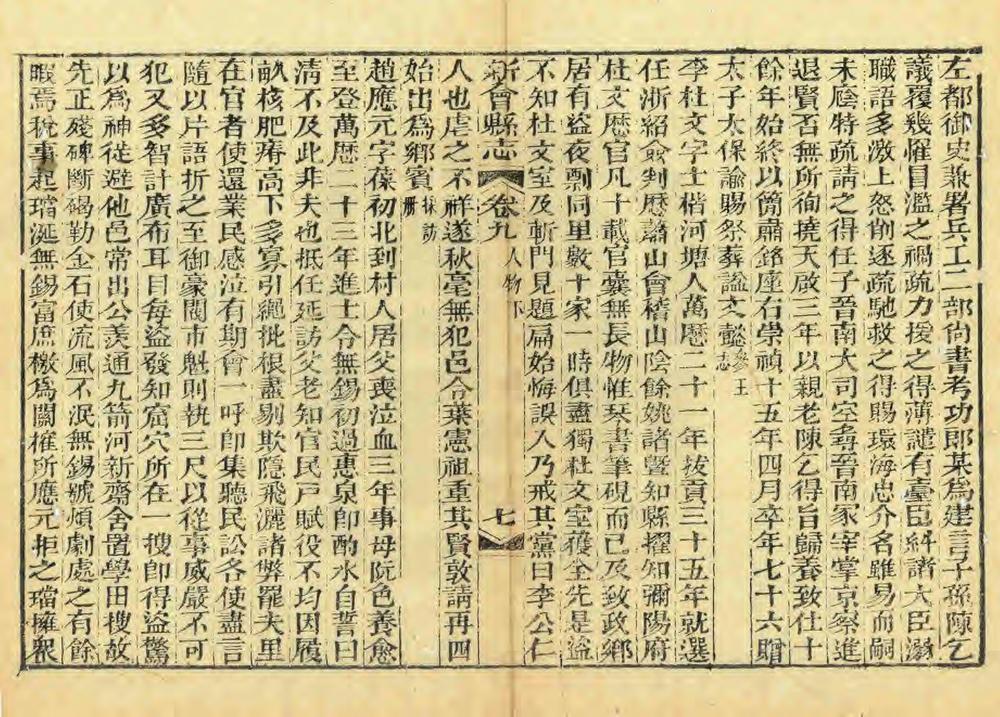 左都御史兼署兵工二部尚書考功郎某為建言子孫陳乞
議覆幾懼目濫之禍疏力援之得薄譴有臺臣糾諸大臣溺
職語多激上怒削逐疏馳救之得賜環海忠介名雖易而嗣
未廕特疏請之得任子晉南大司空尋晉南冢宰掌京察進
退賢否無所徇撓天啟三年以親老陳乞得旨歸養致仕十
餘年始終以簡肅銘座右崇禎十五年四月卒年七十六贈
太子太保諭賜祭葬諡文懿參王志
李杜文字士楷河塘人萬曆二十一年拔貢三十五年就選
任浙紹僉判歷蕭山會稽山陰餘姚諸暨知縣擢知彌陽府
杜文歷官凡十載官囊無長物惟琴書筆硯而已及致政鄉
居有盜夜剽同里數十家一時俱盡獨杜文室獲全先是盜
不知杜文室及斬門見題扁始悔誤入乃戒其黨曰李公仁
新會縣志 卷九 人物下 七
人也虐之不祥遂秋毫無犯邑令葉憲祖重其賢敦請再四
始出為鄉賓採訪冊
趙應元字葆初北到村人居父喪泣血三年事母阮色養愈
至登萬曆二十三年進士令無錫初過惠泉即酌水自誓曰
清不及此非夫也抵任延訪父老知官民戶賦役不均因履
畝核肥瘠高下多寡引繩批根盡剔欺隱飛灑諸弊罷夫里
在官者使還業民感泣有期會一呼即集聽民訟各使盡言
隨以片語折之至御豪閥市魁則執三尺以從事威嚴不可
犯又多智計廣布耳目每盜發知窟穴所在一搜即得盜驚
以為神從避他邑常出公羨通九箭河新齋舍置學田搜故
先正殘碑斷碣勒金石使流風不泯無錫號煩劇處之有餘
暇焉稅事起璫涎無錫富庶檄為關榷所應元拒之璫擁眾